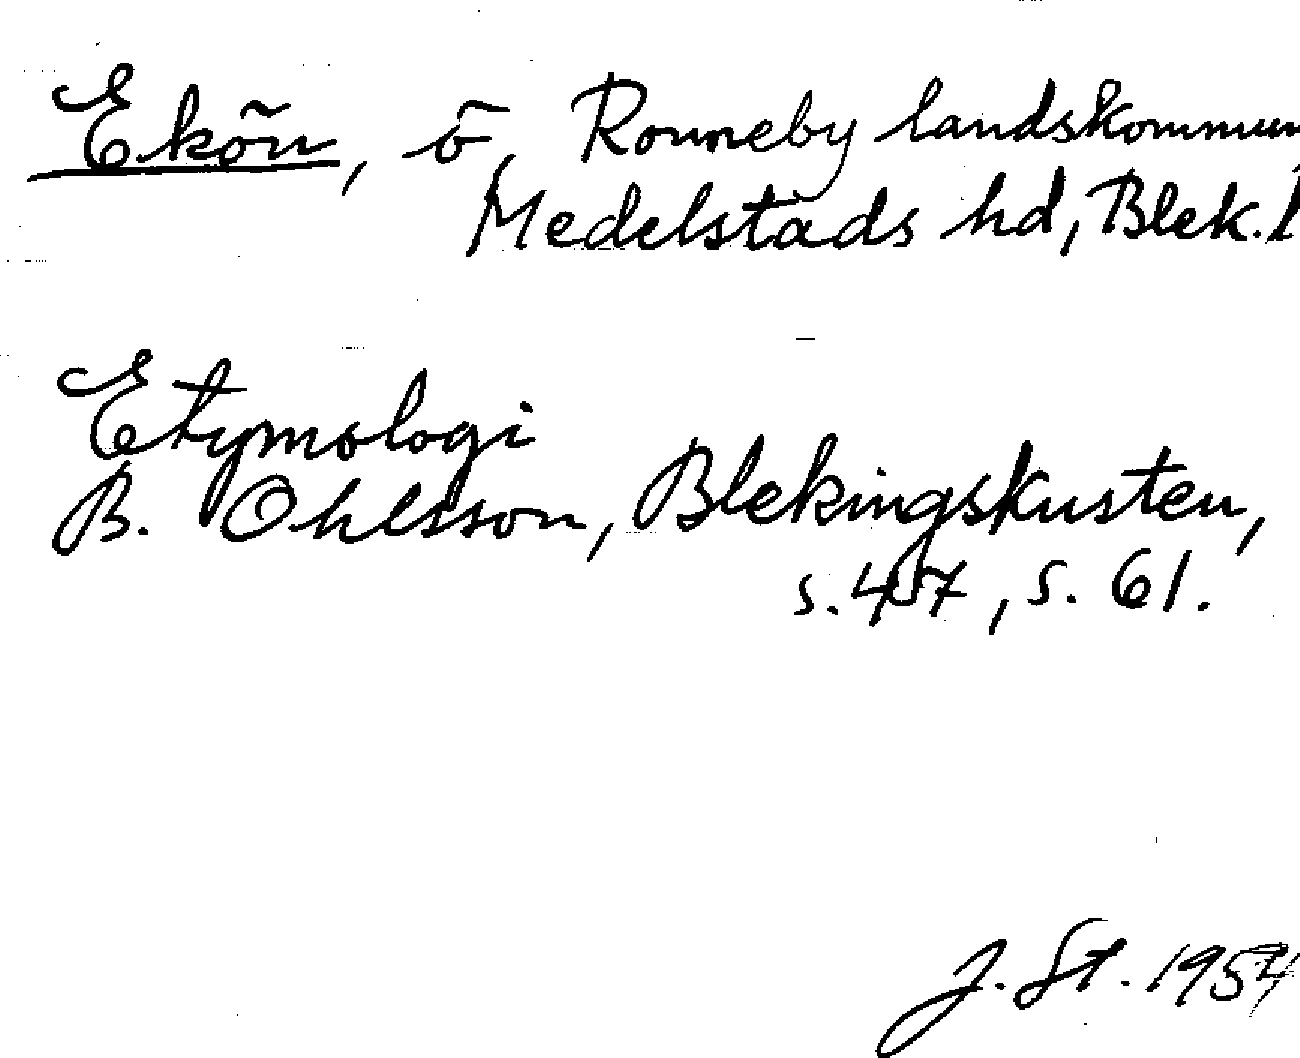 Ekön, ö, Ronneby landskommun
Medelstads hd, Blek. l
Etymologi
B. Ohlsson, Blekingskusten,
s. 457, s. 61.
J. St. 1954